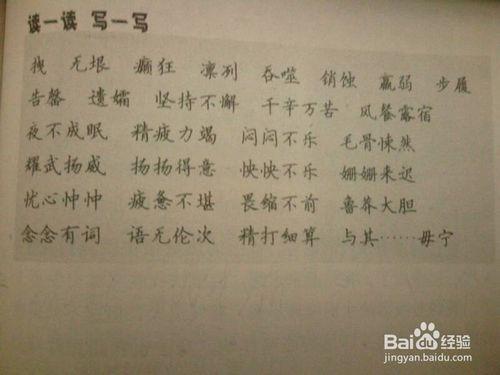 读一读 写一写
拽 无垠 癫狂 凛冽 吞噬 销蚀 羸弱 步履
告罄 遗孀 坚持不懈 千辛万苦 风餐露宿
夜不成眠 精疲力竭 闷闷不乐 毛骨悚然
耀武扬威 扬扬得意 怏怏不乐 姗姗来迟
忧心忡忡 疲惫不堪 畏缩不前 鲁莽大胆
念念有词 语无伦次 精打细算 与其……毋宁
Baidu经验
jingyan.baidu.com